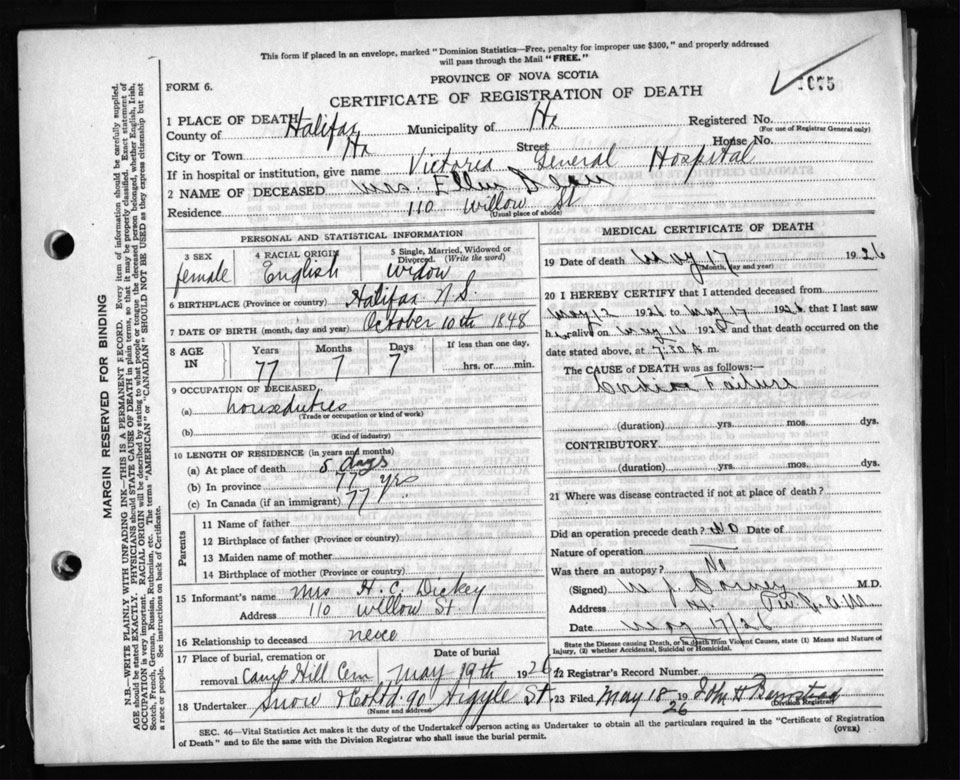 This form if placed in an envelope, marked " Dominion Statistics—Free, penalty for improper use $300," and properly addressed
will pass through the Mail "FREE."
PROVINCE OF NOVA SCOTIA
FORM 6.
1075
CERTIFICATE OF REGISTRATION OF DEATH
1 PLACE OF DEATH
County of Halifax Municipality of Hx Registered No.
(For use of Registrar General only)
City or Town Hx Street House No.
If in hospital or institution, give name Victoria General Hospital
2 NAME OF DECEASED Mrs. Ellen
Residence 110 Willow St
(Usual place of abode)
PERSONAL AND STATISTICAL INFORMATION
3 SEX
female
4 RACIAL ORIGIN
English
5 Single, Married, Widowed or
Divorced. (Write the word)
Widow
6 BIRTHPLACE (Province or country) Halifax N.S.
7 DATE OF BIRTH (month, day and year) October 10th 1848
8 AGE IN
Years Months Days If less than one day,
77 7 7 hrs. or min.
9 OCCUPATION OF DECEASED
(a) houseduties
(Trade or occupation or kind of work)
(b)
(Kind of industry)
10 LENGTH OF RESIDENCE (in years and months)
(a) At place of death 5 days
(b) In province 77 yrs
(c) In Canada (if an immigrant) 77
Parents
11 Name of father
12 Birthplace of father (Province or country)
13 Maiden name of mother
14 Birthplace of mother (Province or country)
15 Informant's name Mrs H. C. Dickey
Address 110 Willow St
16 Relationship to deceased neice
17 Place of burial, cremation or Date of burial
removal Camp Hill Cem May 19th 1926
18 Undertaker Snow & Co Ltd 90 Argyle St
(Name and address)
MEDICAL CERTIFICATE OF DEATH
19 Date of death May 17 1926
(Month, day and year)
20 I HEREBY CERTIFY that I attended deceased from
May 12 1926 to May 17 1926 that I last saw
her alive on May 16 1926 and that death occurred on
date stated above, at 7:50 A.m.
The CAUSE of DEATH was as follows:—
Cardiac Failure
(duration) yrs. mos. dys.
CONTRIBUTORY
(duration) yrs. mos. dys.
21 Where was disease contracted if not at place of death?
Did an operation precede death? No Date of
Nature of operation
Was there an autopsy? No
(Signed) M.D.
Address
Date May 17/26
State the Disease causing Death, or in death from Violent Causes, state (1) Means and Nature of
Injury, (2) whether Accidental, Suicidal or Homicidal.
22 Registrar's Record Number
23 Filed May 18 1926 John H
(Division Registrar)
SEC. 46—Vital Statistics Act makes it the duty of the Undertaker or person acting as Undertaker to obtain all the particulars required in the "Certificate of Registration
of Death" and to file the same with the Division Registrar who shall issue the burial permit.
(OVER)
MARGIN RESERVED FOR BINDING
N.B.—WRITE PLAINLY WITH UNFADING INK—THIS IS A PERMANENT RECORD. Every item of information should be carefully supplied.
AGE should be stated EXACTLY. PHYSICIANS should STATE CAUSE OF DEATH in plain terms, so that it may be properly classified. Exact statement of
OCCUPATION is very important. RACIAL ORIGIN will be described by stating to what people or tongue the deceased person belonged, whether English, Irish,
Scotch, French, German, Russian, Ruthenian, etc. The terms "AMERICAN" or "CANADIAN" SHOULD NOT BE USED as they express citizenship but not
a race or people. See instructions on back of Certificate.